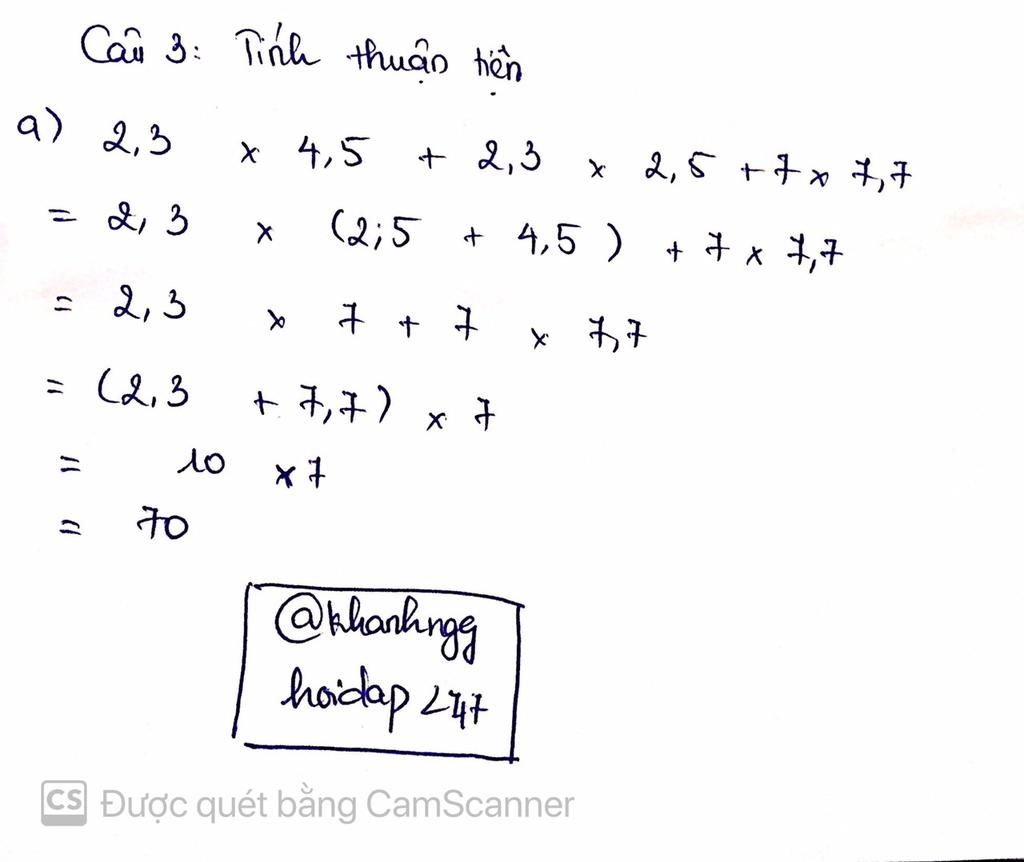 Câu 3: Tính thuận tiện
a) 2,3 x 4,5 + 2,3 x 2,5 + 7 x 7,7
= 2,3 x (2;5 + 4,5) + 7 x 7,7
= 2,3 x 7 + 7 x 7,7
= (2,3 + 7,7) x 7
= 10 x 7
= 70
@khanhngg
hoidap 247
CS Được quét bằng CamScanner